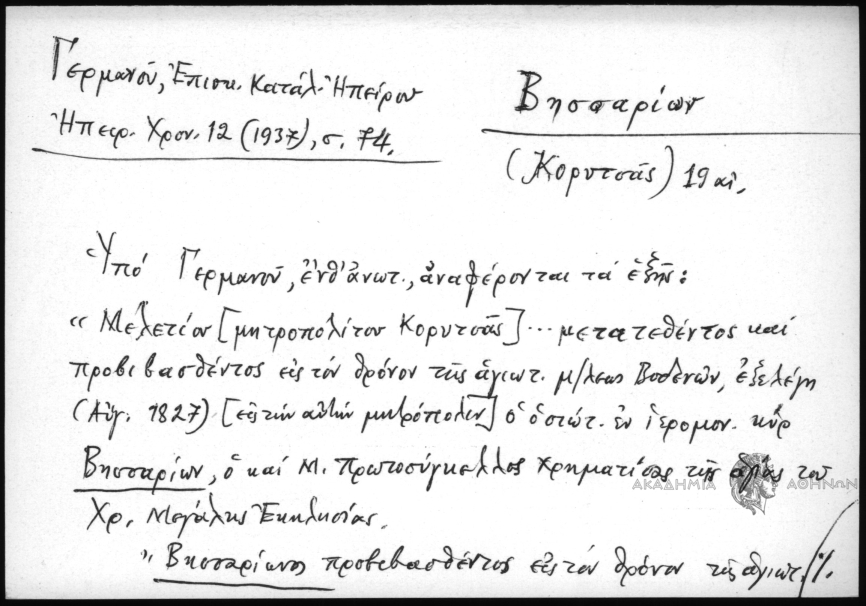 Γερμανοῦ, Ἐπισκ. Κατάλ. Ἠπείρου
Ἠπειρ. Χρον. 12 (1937), σ. 74.
Βησσαρίων
(Κορυτσᾶς) 19 αἰ.
Ὑπό Γερμανοῦ, ἔνθ' ἀνωτ., ἀναφέρονται τά ἑξῆς:
« Μελετίου [μητροπολίτου Κορυτσᾶς] ... μετατεθέντος καί
προβιβασθέντος εἰς τόν θρόνον τῆς ἁγιωτ. μ/λεως Βοδενῶν, ἐξελέγη
(Αὔγ. 1827) [εἰς τήν αὐτήν μητρόπολιν] ὁ ὁσιώτ. ἐν ἱερομον. κύρ
Βησσαρίων, ὁ καί Μ. Πρωτοσύγκελλος χρηματίσας τῆς ἁγίας του
Χρ. Μεγάλης Ἐκκλησίας.
» Βησσαρίωνος προβιβασθέντος εἰς τόν θρόνον τῆς ἁγιωτ. ./.
ΑΚΑΔΗΜΙΑ ΑΘΗΝΩΝ